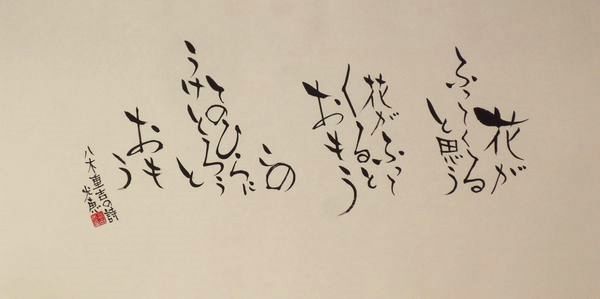 花が
ふってくる
と思う
花がふって
くると
おもう
この
てのひらに
うけとろうと
おもう
八木重吉の詩